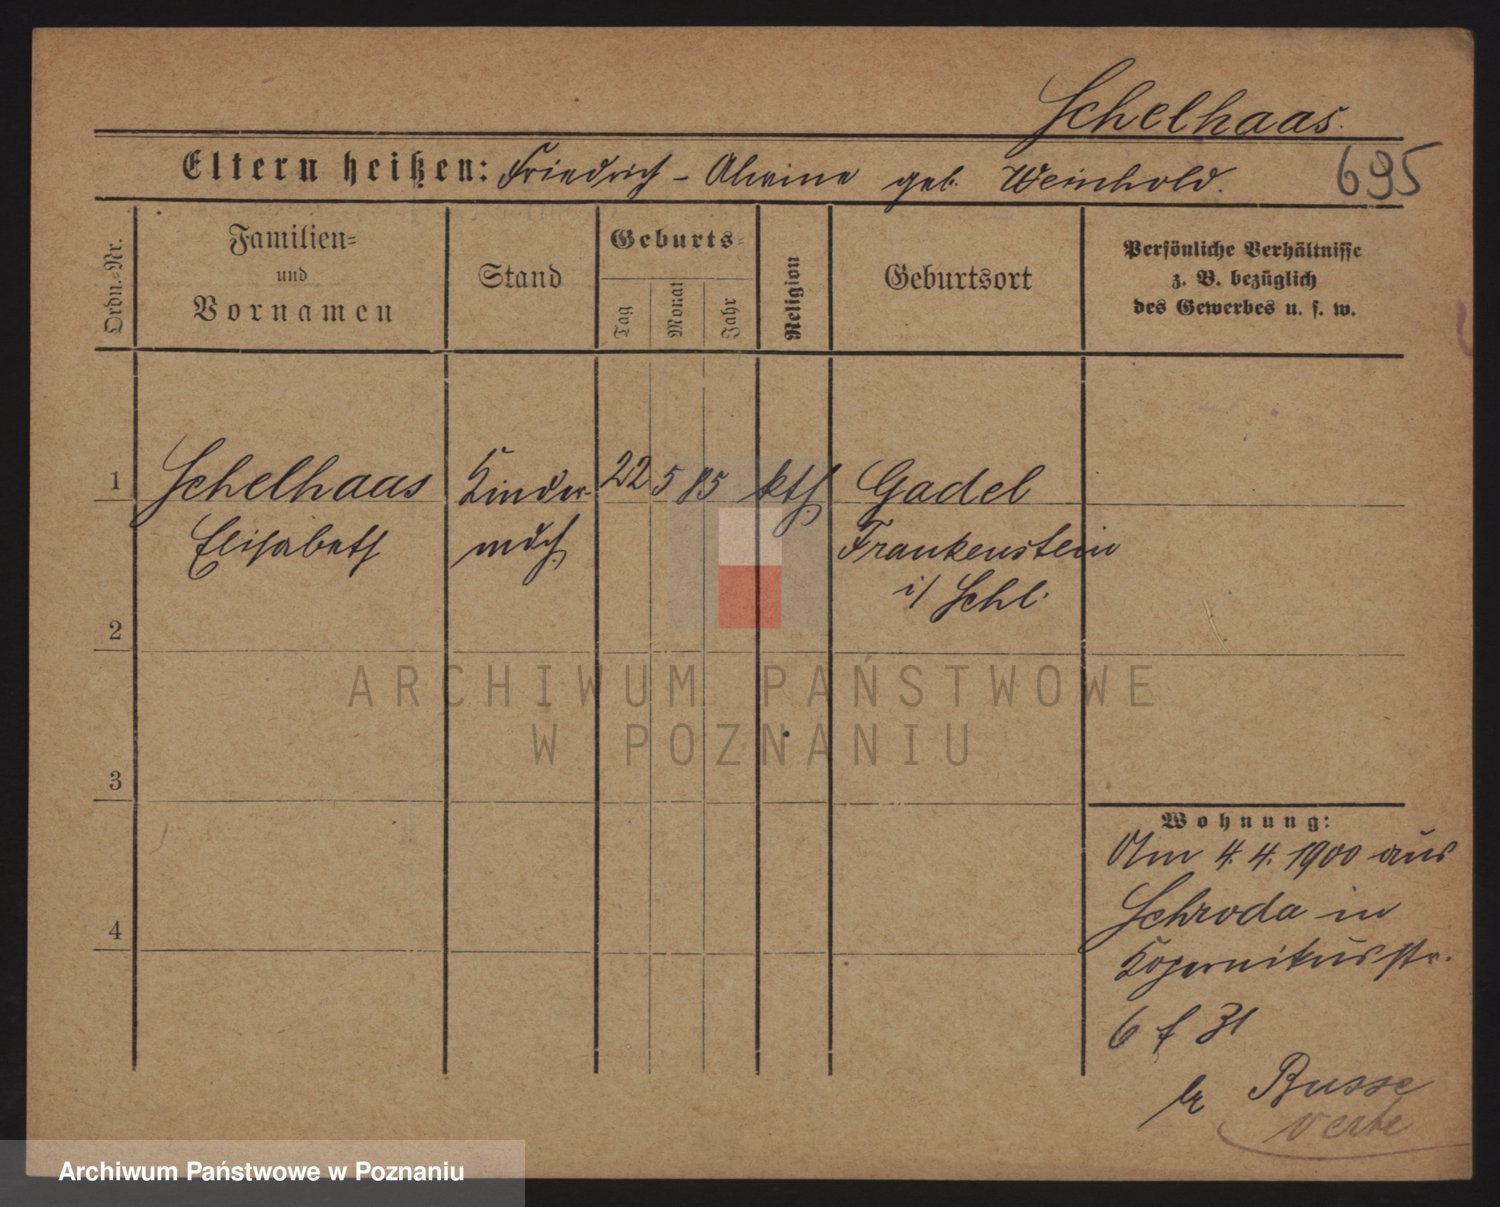 Schelhaas.
Eltern heißen: Friedrich - Alwine geb. Weinhold.
695
Ordn.-Nr.
Familien-
und
Vornamen
Stand
Geburts-
Tag
Monat
Jahr
Religion
Geburtsort
Persönliche Verhältnisse
z. B. bezüglich
des Gewerbes u. s. w.
1 Schelhaas Kinder- 22 5 85 kth Gadel
Elisabeth mdch. Frankenstein
i/ Schl.
2
3
4
Wohnung:
Am 4. 4. 1900 aus
Schroda in
Kopernikusstr.
6 f 31
Busse
verte
ARCHIWUM PAŃSTWOWE
W POZNANIU
Archiwum Państwowe w Poznaniu